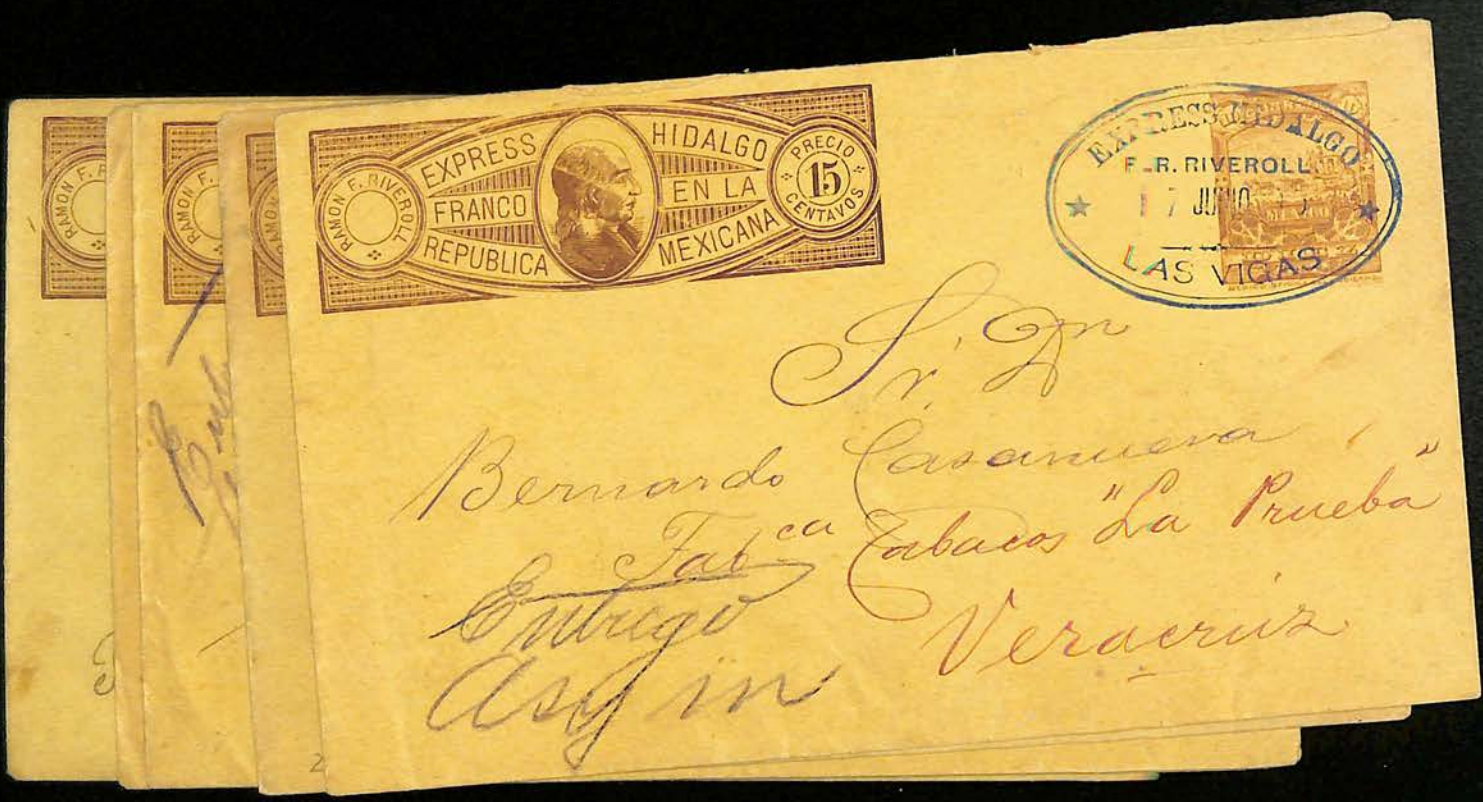 RAMON F. R
RAMON F.
RAMON
RAMON F. RIVEROLL
EXPRESS HIDALGO
FRANCO EN LA
REPUBLICA MEXICANA
PRECIO
15
CENTAVOS
EXPRESS HIDALGO
F. R. RIVEROLL
17 JUNIO
LAS VIGAS
Sr. Dn
Bernardo Casanueva
Fabca Tabacos "La Prueba"
Veracruz
Entrego
2